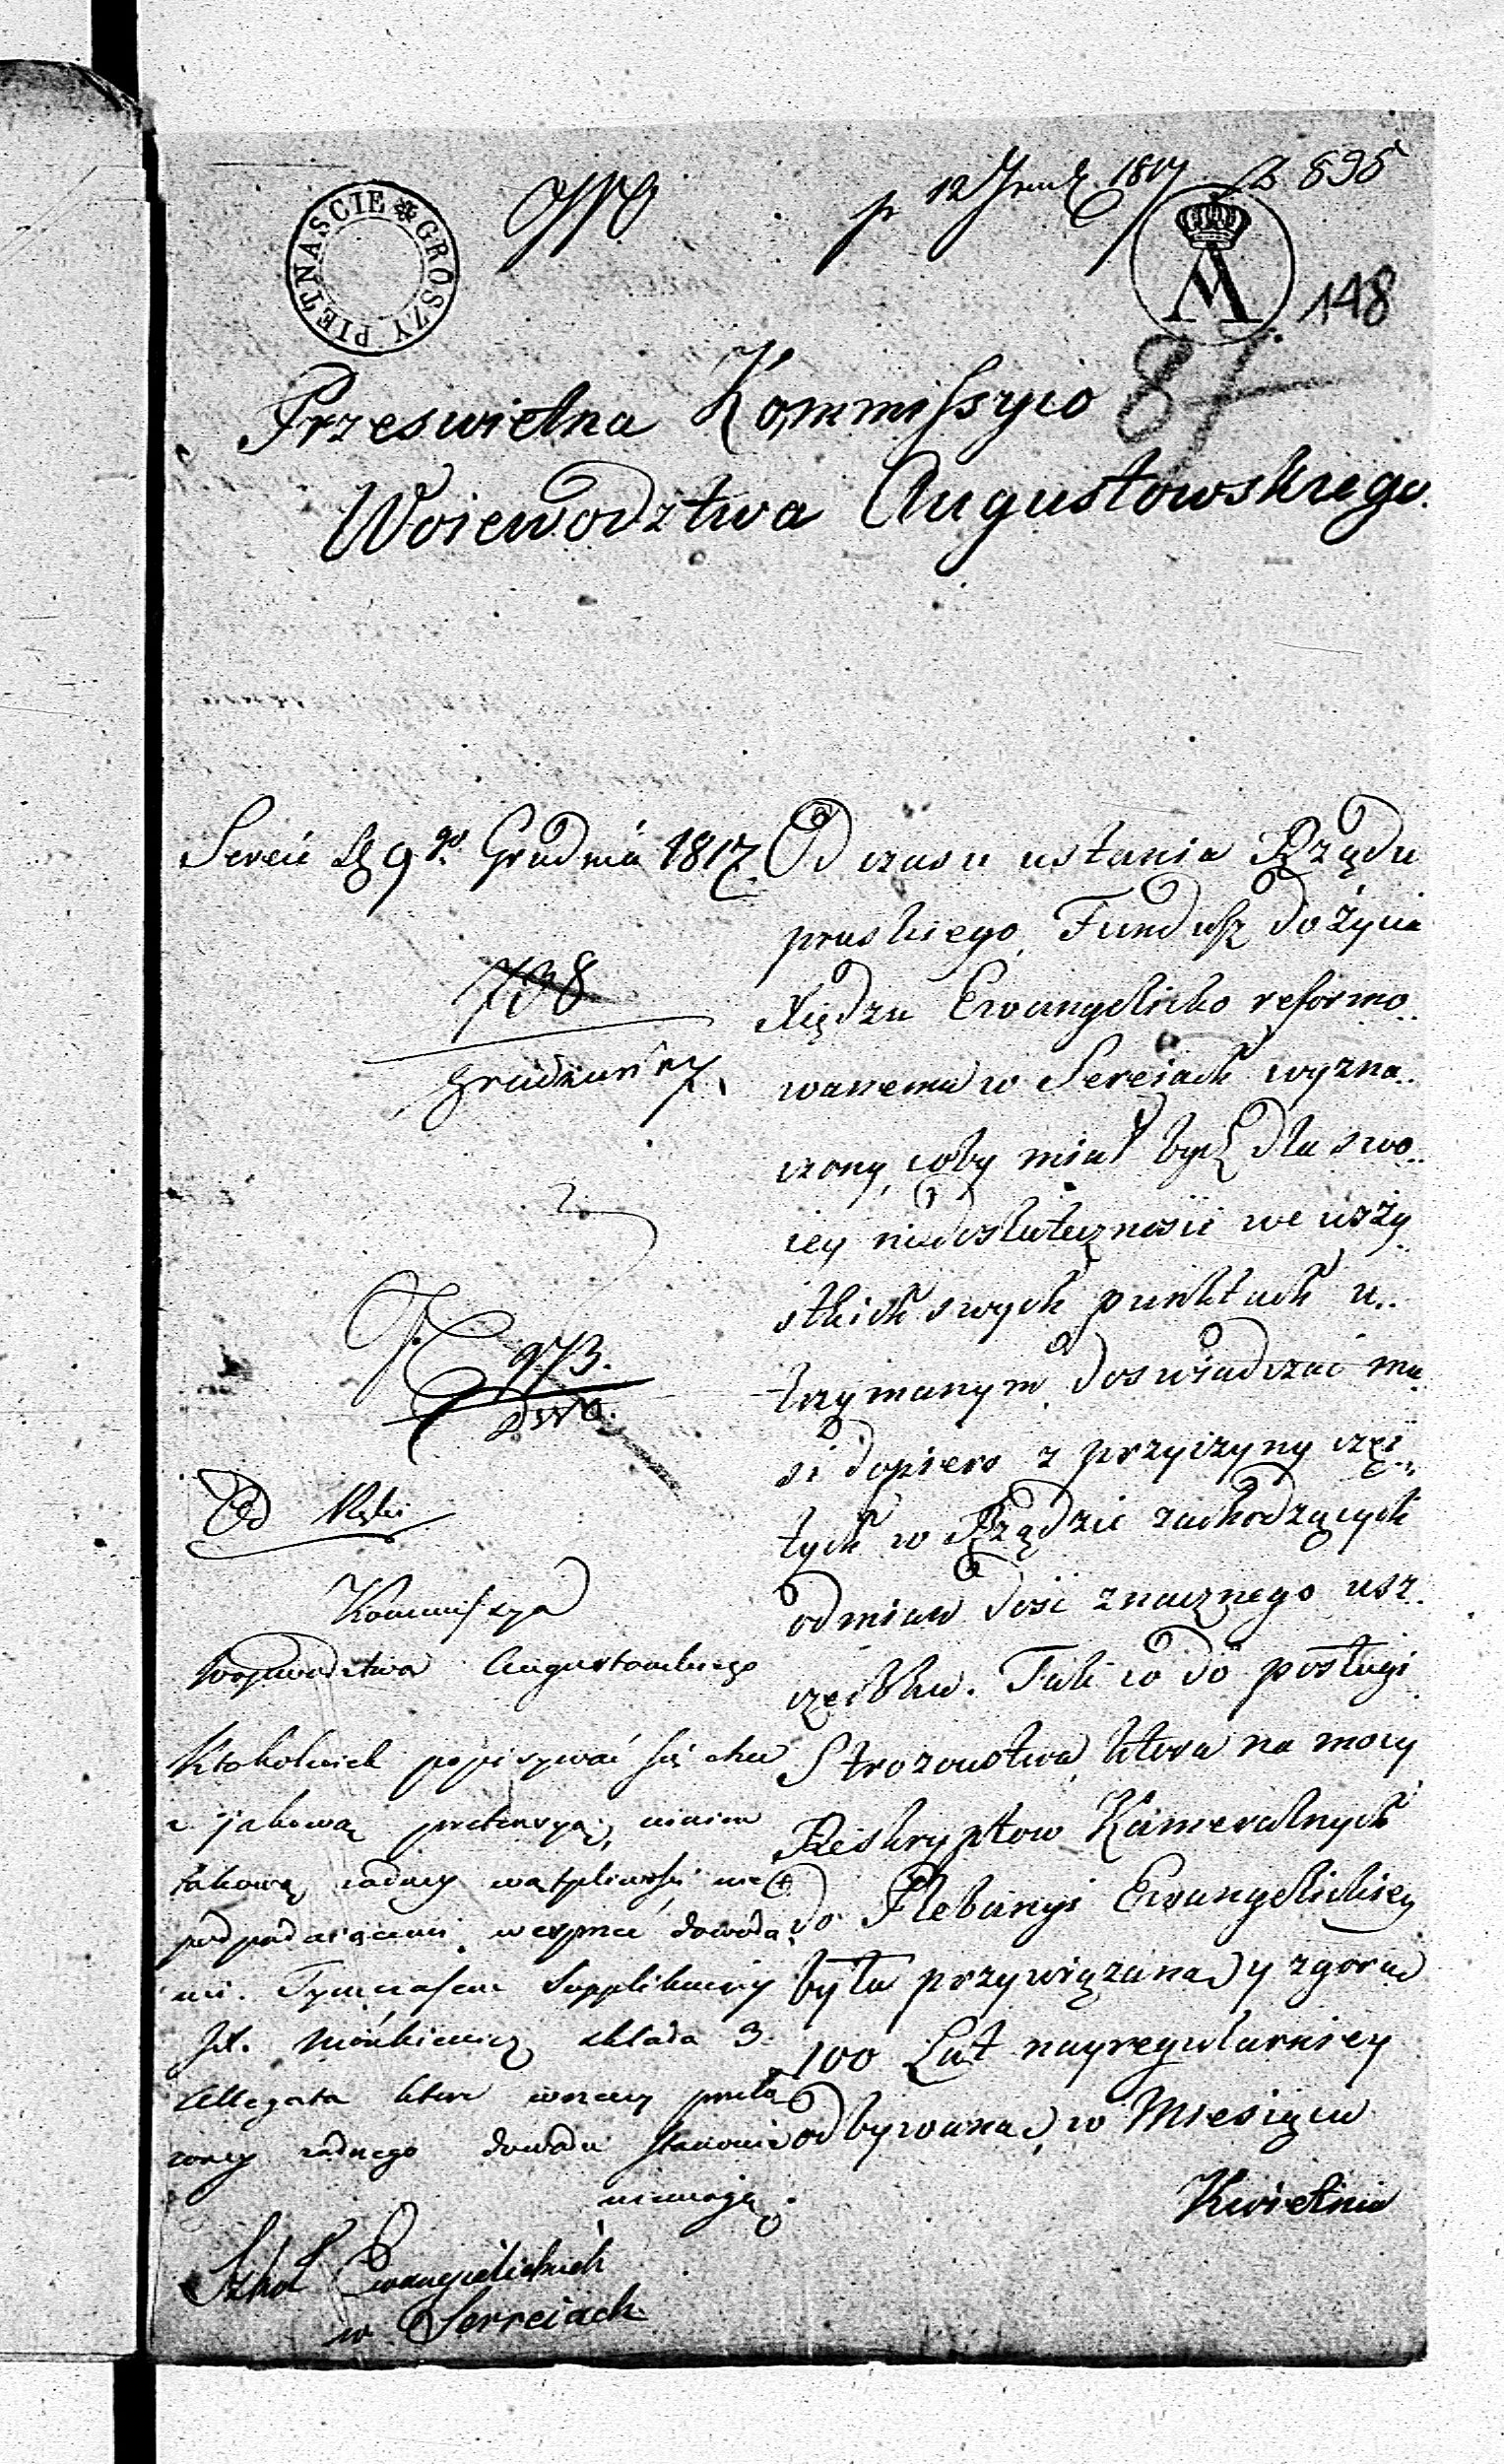 PIETNASCIE GROSZY
p 12 Grud. 1817 895
148
87
Przeswietna Kommissyio
Woiewodztwa Augustowskiego.
Sereie d 9go Grudnia 1817.
738
973.
Kommissya
Woyewodztwa Augustowskiego
Ktokolwiek popisywać się chce
z jakową pretensyą, winien
takową żadney wątpliwości nie
podpadaiącemi wesprzec dowoda
mi. Tymczasem Supplikuiący
składa 3
Allegata które rzeczy
żadnego dowodu stanowić
niemogą.
Szkoł Ewangielickich
w Serreiach
Od czasu ustania Rządu
pruskiego, Fundusz do życia
Xiędzu Ewangelicko reformo..
wanemu w Sereiach wyzna..
czony, coby miał bydź dla swo..
iey niedostateczności we wszy
stkich swych punktach u..
trzymanym, doswiadczać mu
si dopiero z przyczyny częs..
tych w Rządzie zachodzących
odmian dość znacznego usz..
czerbku. Tak co do posługi
Strozowstwa, która na mocy
Reskryptow Kameralnych
do Plebanyi Ewangelickiey
była przywiązana, y zgorą
100 Lat nayregularniey
odbywana, w Miesiącu
Kwietnia